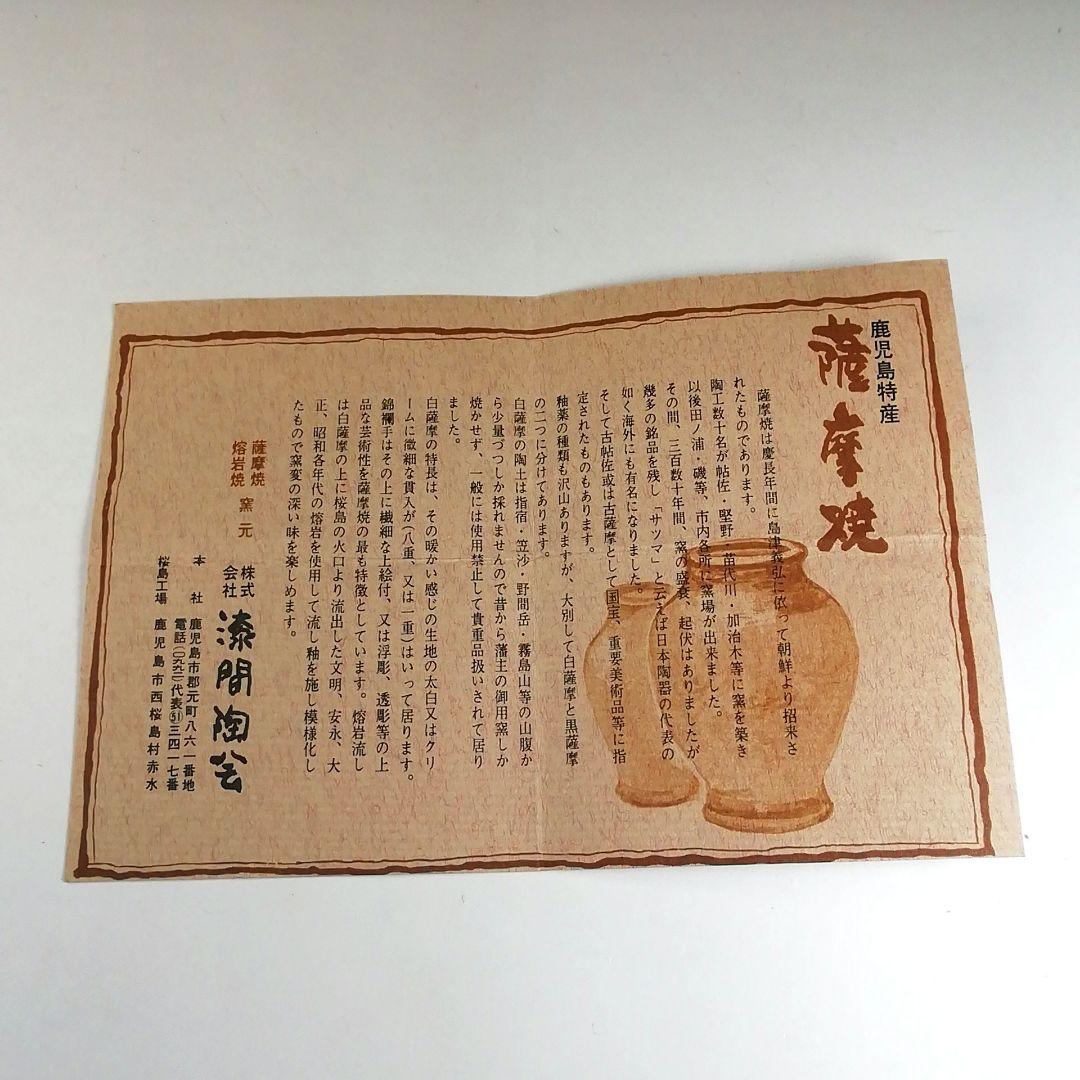 鹿児島特産
薩摩焼
薩摩焼は慶長年間に島津義弘に依って朝鮮より招来さ
れたものであります。
陶工数十名が帖佐・堅野・苗代川・加治木等に窯を築き
以後田ノ浦・磯等、市内各所に窯場が出来ました。
その間、三百数十年間、窯の盛衰、起伏はありましたが
幾多の銘品を残し「サツマ」と云えば日本陶器の代表の
如く海外にも有名になりました。
そして古帖佐或は古薩摩として国宝、重要美術品等に指
定されたものもあります。
釉薬の種類も沢山ありますが、大別して白薩摩と黒薩摩
の二つに分けてあります。
白薩摩の陶土は指宿・笠沙・野間岳・霧島山等の山腹か
ら少量づつしか採れませんので昔から藩主の御用窯しか
焼かせず、一般には使用禁止して貴重品扱いされて居り
ました。
白薩摩の特長は、その暖かい感じの生地の太白又はクリ
ームに微細な貫入が(八重、又は一重)はいって居ります。
錦襴手はその上に繊細な上絵付、又は浮彫、透彫等の上
品な芸術性を薩摩焼の最も特徴としています。熔岩流し
は白薩摩の上に桜島の火口より流出した文明、安永、大
正、昭和各年代の熔岩を使用して流し釉を施し模様化し
たもので窯変の深い味を楽しめます。
薩摩焼
熔岩焼 窯元
株式会社 漆間陶芸
本社 鹿児島市郡元町八六一番地
電話(〇九九二)代表(51)三四一七番
桜島工場 鹿児島市西桜島村赤水